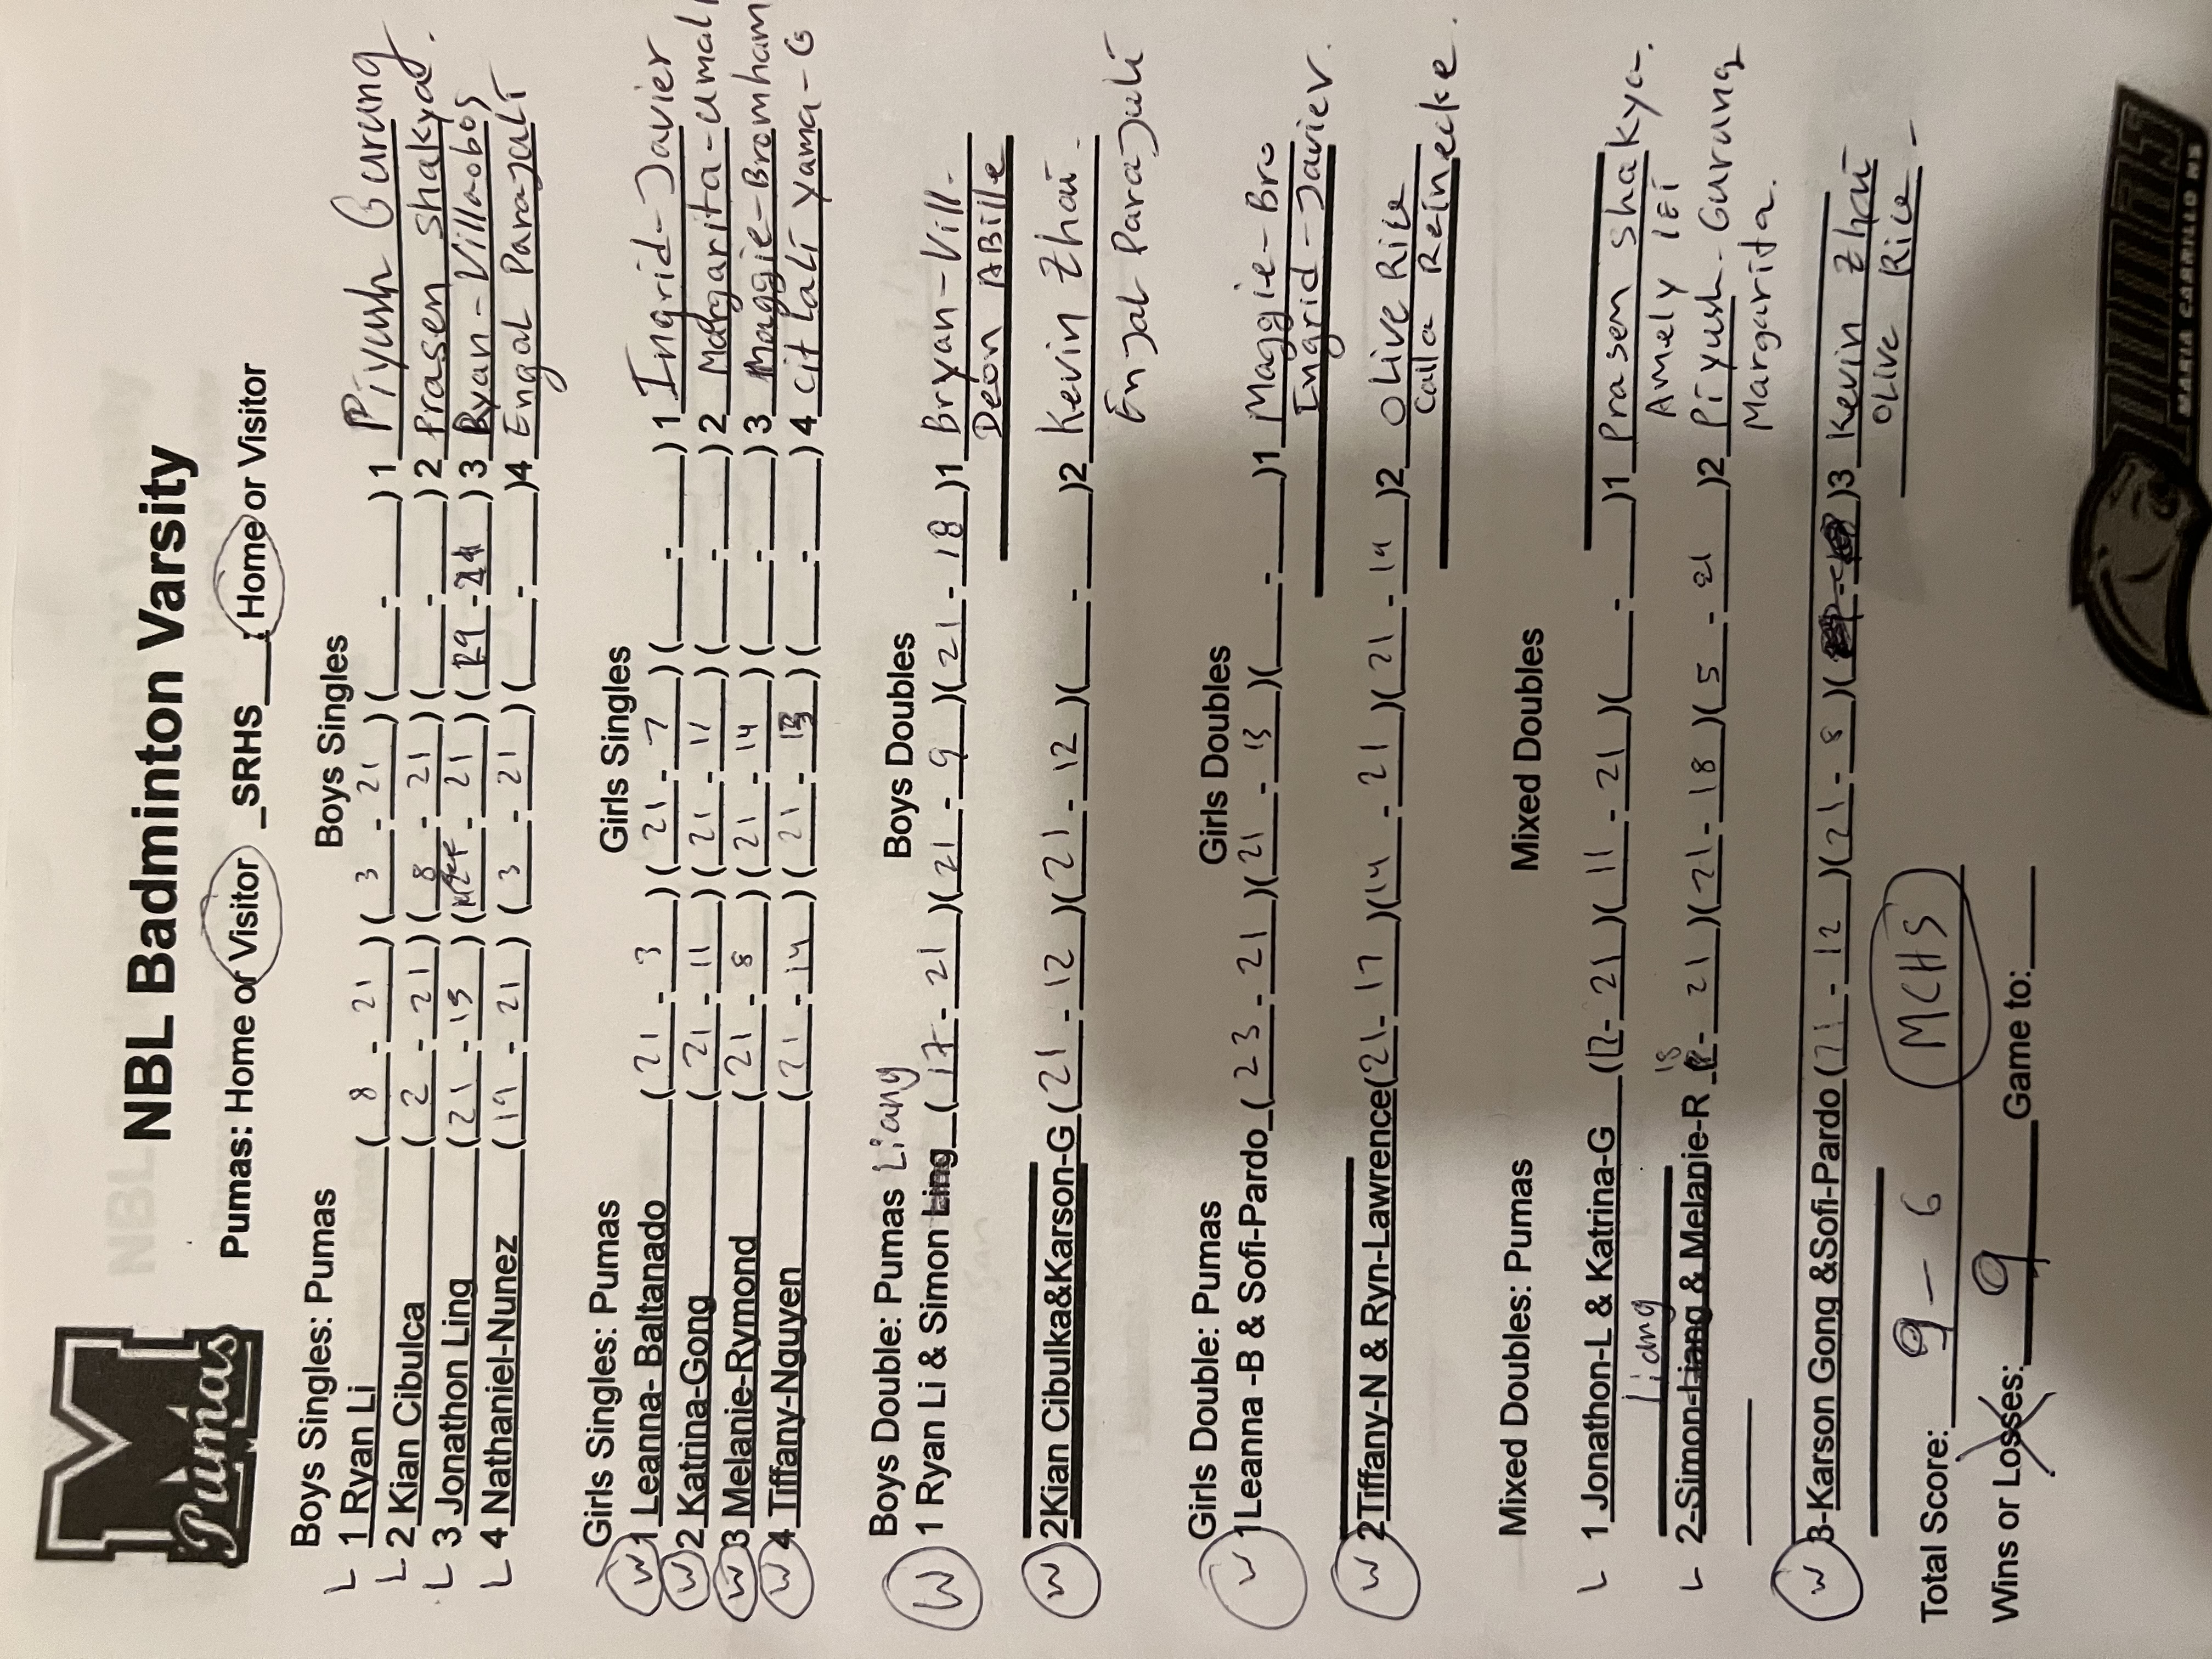 M
Pumas
NBL Badminton Varsity
Pumas: Home or Visitor _SRHS___: Home or Visitor
Boys Singles: Pumas Boys Singles
L 1 Ryan Li ( 8 - 21 ) ( 3 - 21 ) ( - ) 1 Piyush Gurung
L 2 Kian Cibulca ( 2 - 21 ) ( 8 - 21 ) ( - ) 2 Prasen Shakya
L 3 Jonathon Ling ( 21 - 15 ) ( - 21 ) ( 19 - 21 ) 3 Ryan-Villaobos
L 4 Nathaniel-Nunez ( 19 - 21 ) ( 3 - 21 ) ( - )4 Engal Parajali
Girls Singles: Pumas Girls Singles
W 1 Leanna- Baltanado ( 21 - 3 ) ( 21 - 7 ) ( - ) 1 Ingrid-Javier
W 2 Katrina-Gong ( 21 - 11 ) ( 21 - 11 ) ( - ) 2 Margarita-Umali
W 3 Melanie-Rymond ( 21 - 8 ) ( 21 - 14 ) ( - ) 3 Maggie-Bromham
W 4 Tiffany-Nguyen ( 21 - 14 ) ( 21 - 13 ) ( - ) 4 Citlali Yama-G
Boys Double: Pumas Boys Doubles
Liang
W 1 Ryan Li & Simon Ling ( 17 - 21 )( 21 - 9 )( 21 - 18 )1 Bryan-Vill-
Deon ABille
W 2Kian Cibulka&Karson-G ( 21 - 12 )( 21 - 12 )( - )2 Kevin Zhai
Enjal Parajuli
Girls Double: Pumas Girls Doubles
W 1Leanna -B & Sofi-Pardo ( 23 - 21 )( 21 - 13 )( - )1 Maggie-Bro
Ingrid-Javier.
W 2Tiffany-N & Ryn-Lawrence( 21 - 17 )( 14 - 21 )( 21 - 14 )2 Olive Rice
Calla Reinecke.
Mixed Doubles: Pumas Mixed Doubles
L 1 Jonathon-L & Katrina-G ( 12 - 21 )( 11 - 21 )( - )1 Prasem Shakya-.
Liang Amely IEI
L 2-Simon-Liang & Melanie-R ( 18 - 21 )( 21 - 18 )( 5 - 21 )2 Piyush-Gurung
Margarita.
W 3-Karson Gong &Sofi-Pardo ( 21 - 12 )( 21 - 8 )( - )3 Kevin Zhai
Olive Rice-
Total Score: 9 - 6 MCHS
Wins or Losses: 9 Game to:
PUMAS
MARIA CARRILLO HS